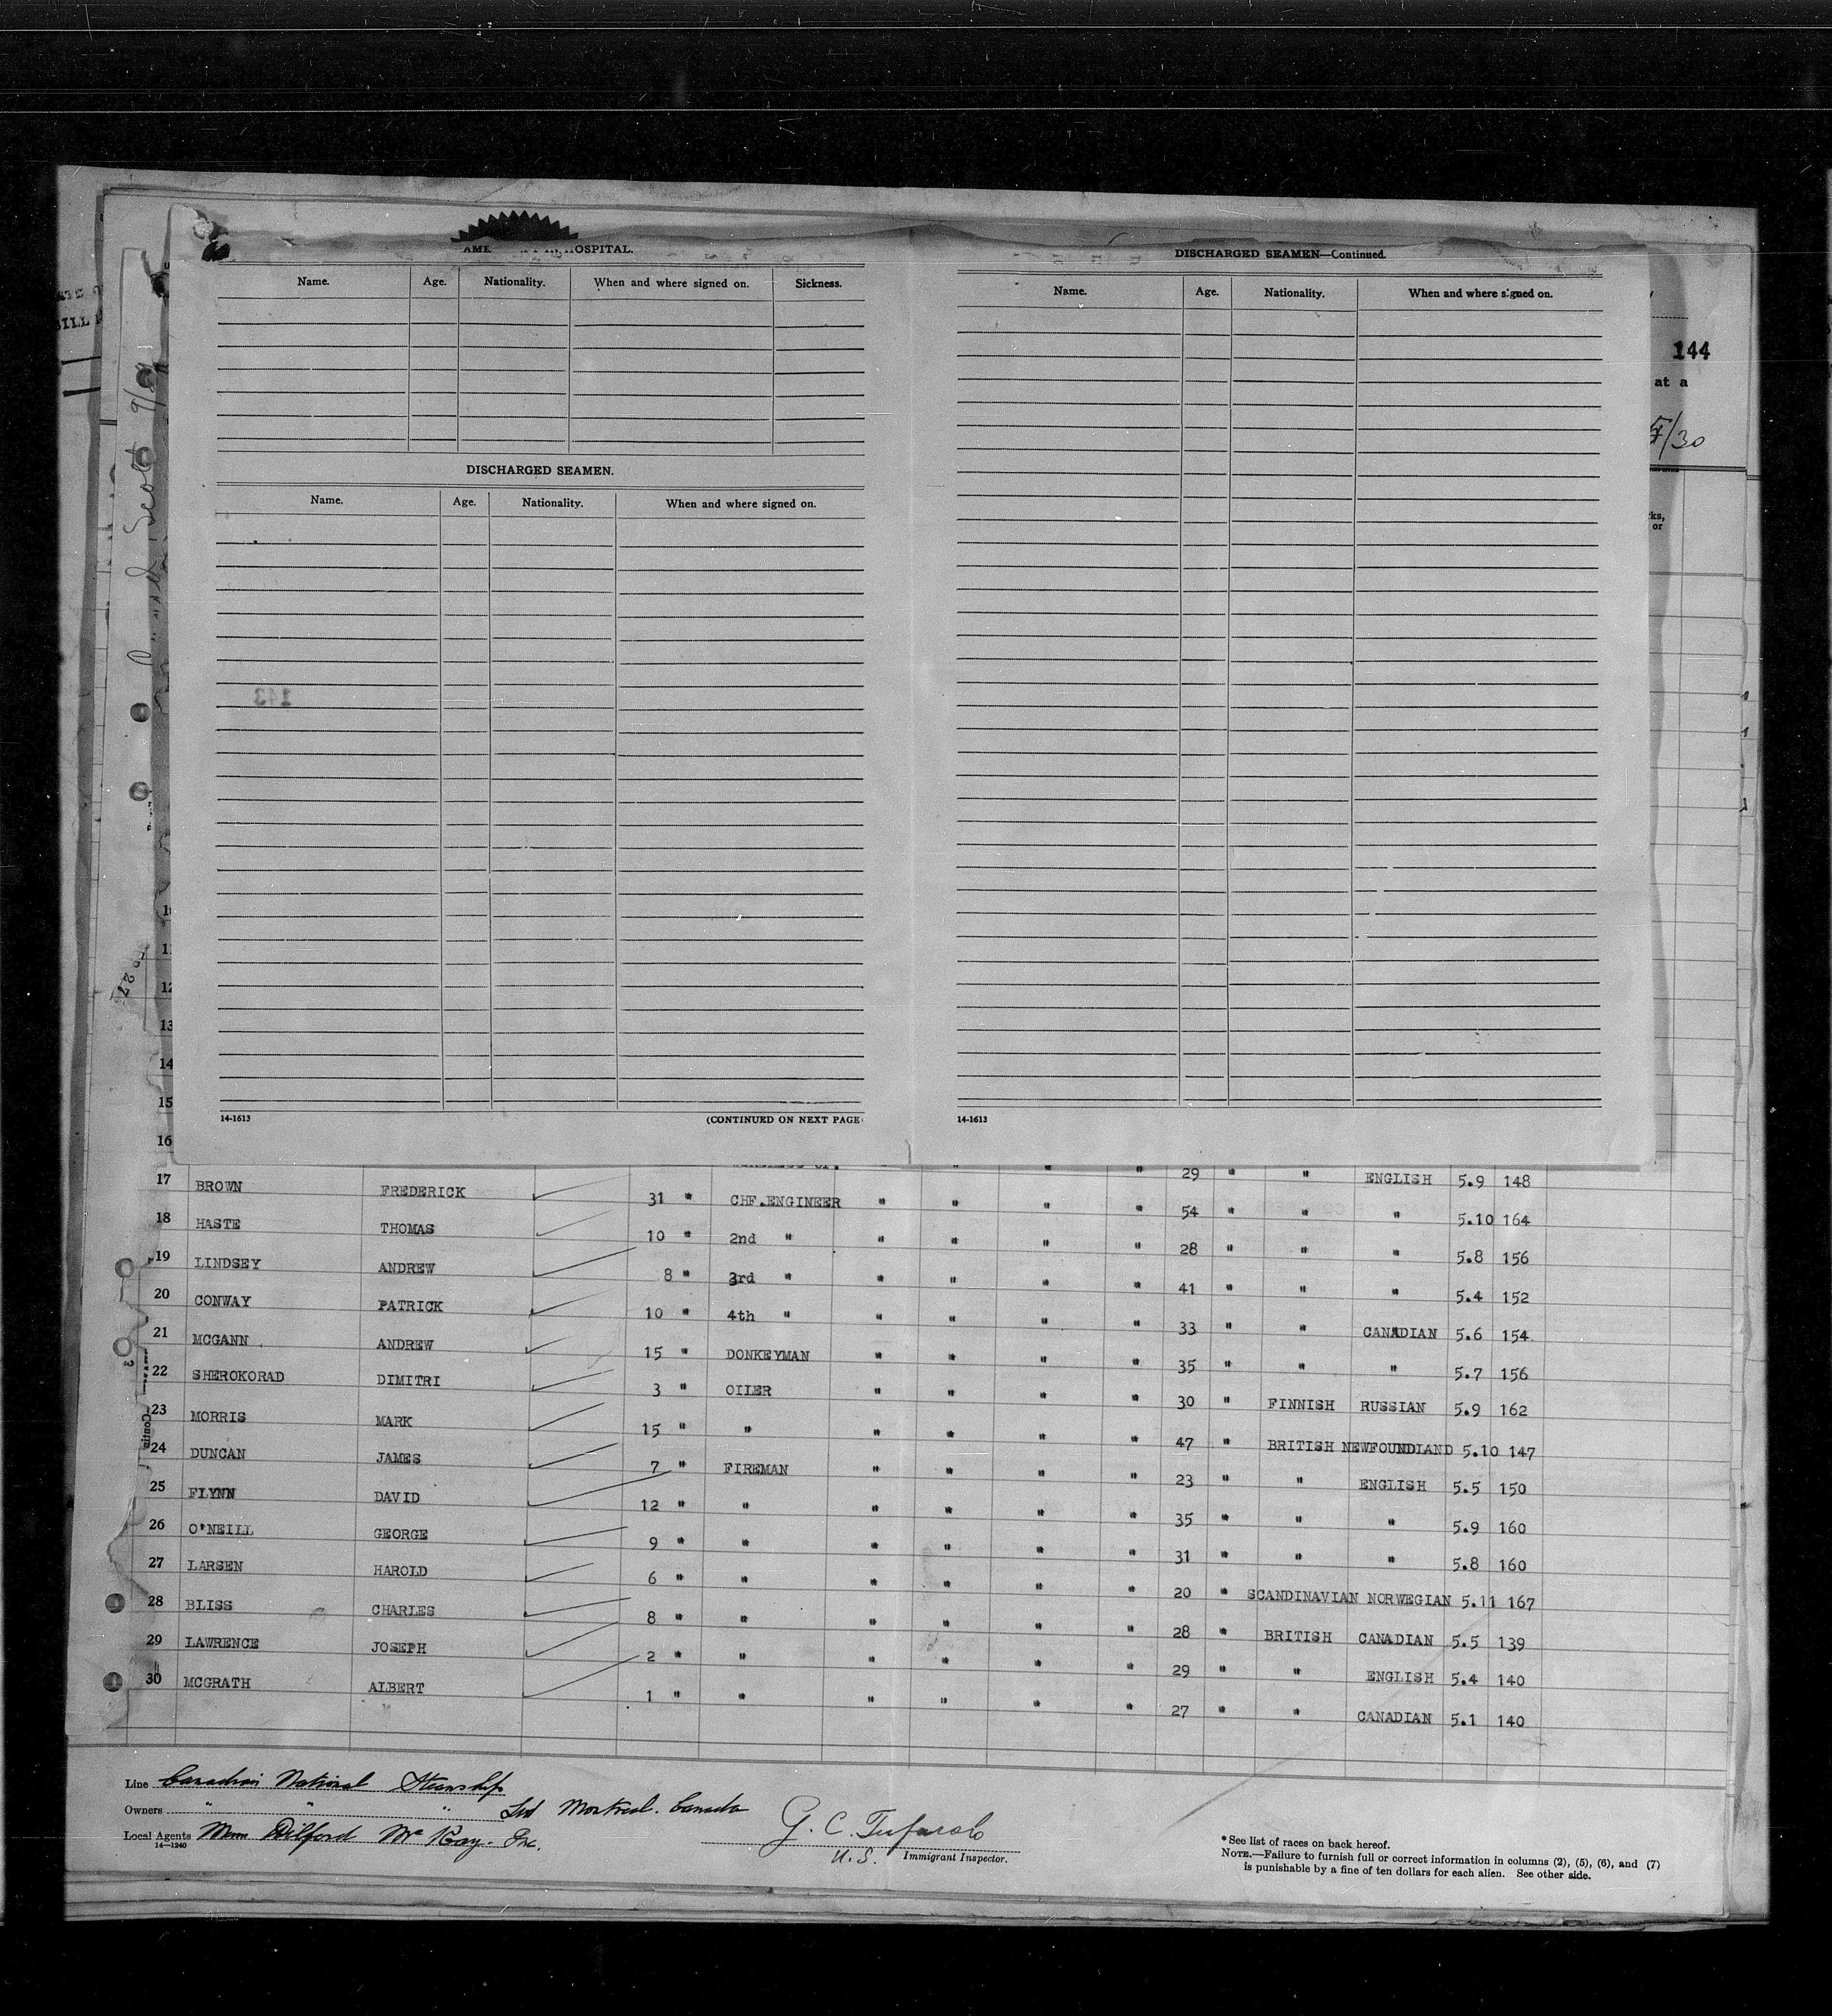 HOSPITAL.
Name. Age. Nationality. When and where signed on. Sickness.
DISCHARGED SEAMEN.
Name. Age. Nationality. When and where signed on.
143
14-1613 (CONTINUED ON NEXT PAGE
DISCHARGED SEAMEN—Continued.
Name. Age. Nationality. When and where signed on.
14-1613
144
at a
/30
or
11
12
13
14
15
16 29 " " ENGLISH 5.9 148
17 BROWN FREDERICK 31 " CHF.ENGINEER " " " " 54 " " " 5.10 164
18 HASTE THOMAS 10 " 2nd " " " " " 28 " " " 5.8 156
19 LINDSEY ANDREW 8 " 3rd " " " " " 41 " " " 5.4 152
20 CONWAY PATRICK 10 " 4th " " " " " 33 " " CANADIAN 5.6 154
21 MCGANN ANDREW 15 " DONKEYMAN " " " " 35 " " " 5.7 156
22 SHEROKORAD DIMITRI 3 " OILER " " " " 30 " FINNISH RUSSIAN 5.9 162
23 MORRIS MARK 15 " " " " " " 47 " BRITISH NEWFOUNDLAND 5.10 147
24 DUNCAN JAMES 7 " FIREMAN " " " " 23 " " ENGLISH 5.5 150
25 FLYNN DAVID 12 " " " " " " 35 " " " 5.9 160
26 O'NEILL GEORGE 9 " " " " " " 31 " " " 5.8 160
27 LARSEN HAROLD 6 " " " " " " 20 " SCANDINAVIAN NORWEGIAN 5.11 167
28 BLISS CHARLES 8 " " " " " " 28 " BRITISH CANADIAN 5.5 139
29 LAWRENCE JOSEPH 2 " " " " " " 29 " " ENGLISH 5.4 140
30 MCGRATH ALBERT 1 " " " " " " 27 " " CANADIAN 5.1 140
Line Canadian National Steamship
Owners " " " Ltd Montreal. Canada
Local Agents Dilford Mc Kay. Inc.
14—1240
G. C. Tufarolo
U.S. Immigrant Inspector.
* See list of races on back hereof.
NOTE.—Failure to furnish full or correct information in columns (2), (5), (6), and (7)
is punishable by a fine of ten dollars for each alien. See other side.